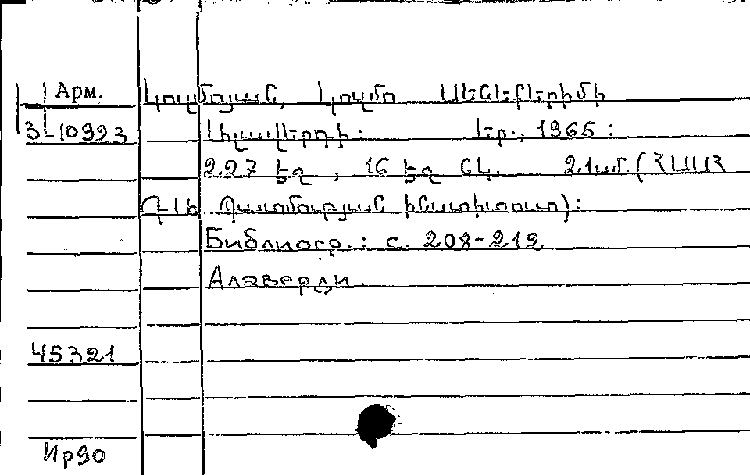 Арм. Կուզմոյան, Կոզմո Սենեքերիմի
3-10923 Ալավերդի: Եր., 1965:
227 էջ, 16 էջ նկ. 21սմ. (ՀՍՍՀ
ԳԱ Պատմության ինստիտուտ):
Библиогр.: с. 208-219
Алаверди
45321
Ир90